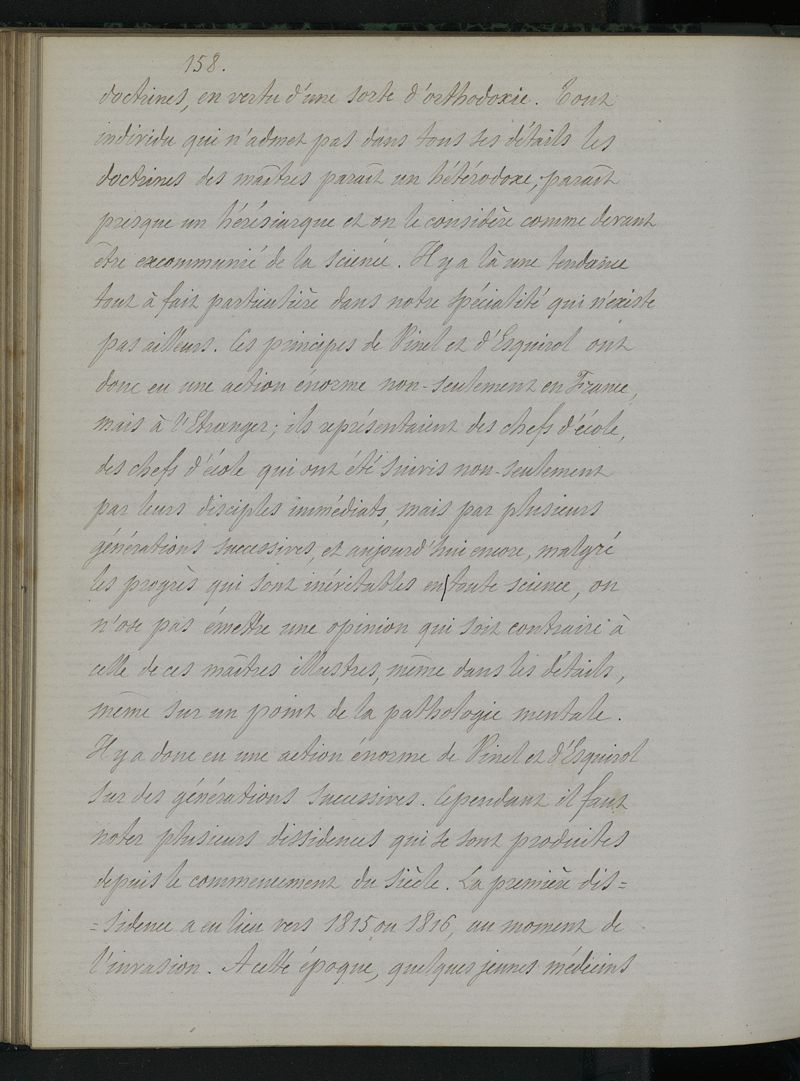 158.
doctrines, en vertu d'une sorte d'orthodoxie. Tout
individu qui n'admet pas dans tous ses détails les
doctrines des maîtres paraît un hétérodoxe, paraît
presque un hérésiarque et on le considère comme devant
être excommunié de la science. Il y a là une tendance
tout à fait particulière dans notre spécialité qui n'existe
pas ailleurs. Ces principes de Pinel et d'Esquirol ont
donc eu une action énorme non-seulement en France,
mais à l'Etranger; ils représentaient des chefs d'école,
des chefs d'école qui ont été suivis non-seulement
par leurs disciples immédiats, mais par plusieurs
générations successives, et aujourd'hui encore, malgré
les progrès qui sont inévitables en toute science, on
n'ose pas émettre une opinion qui soit contraire à
celle de ces maîtres illustres, même dans les détails,
même sur un point de la pathologie mentale.
Il y a donc eu une action énorme de Pinel et d'Esquirol
sur des générations successives. Cependant il faut
noter plusieurs dissidences qui se sont produites
depuis le commencement du siècle. La première dis=
=sidence a eu lieu vers 1815 ou 1816, au moment de
l'invasion. A cette époque, quelques jeunes médecins